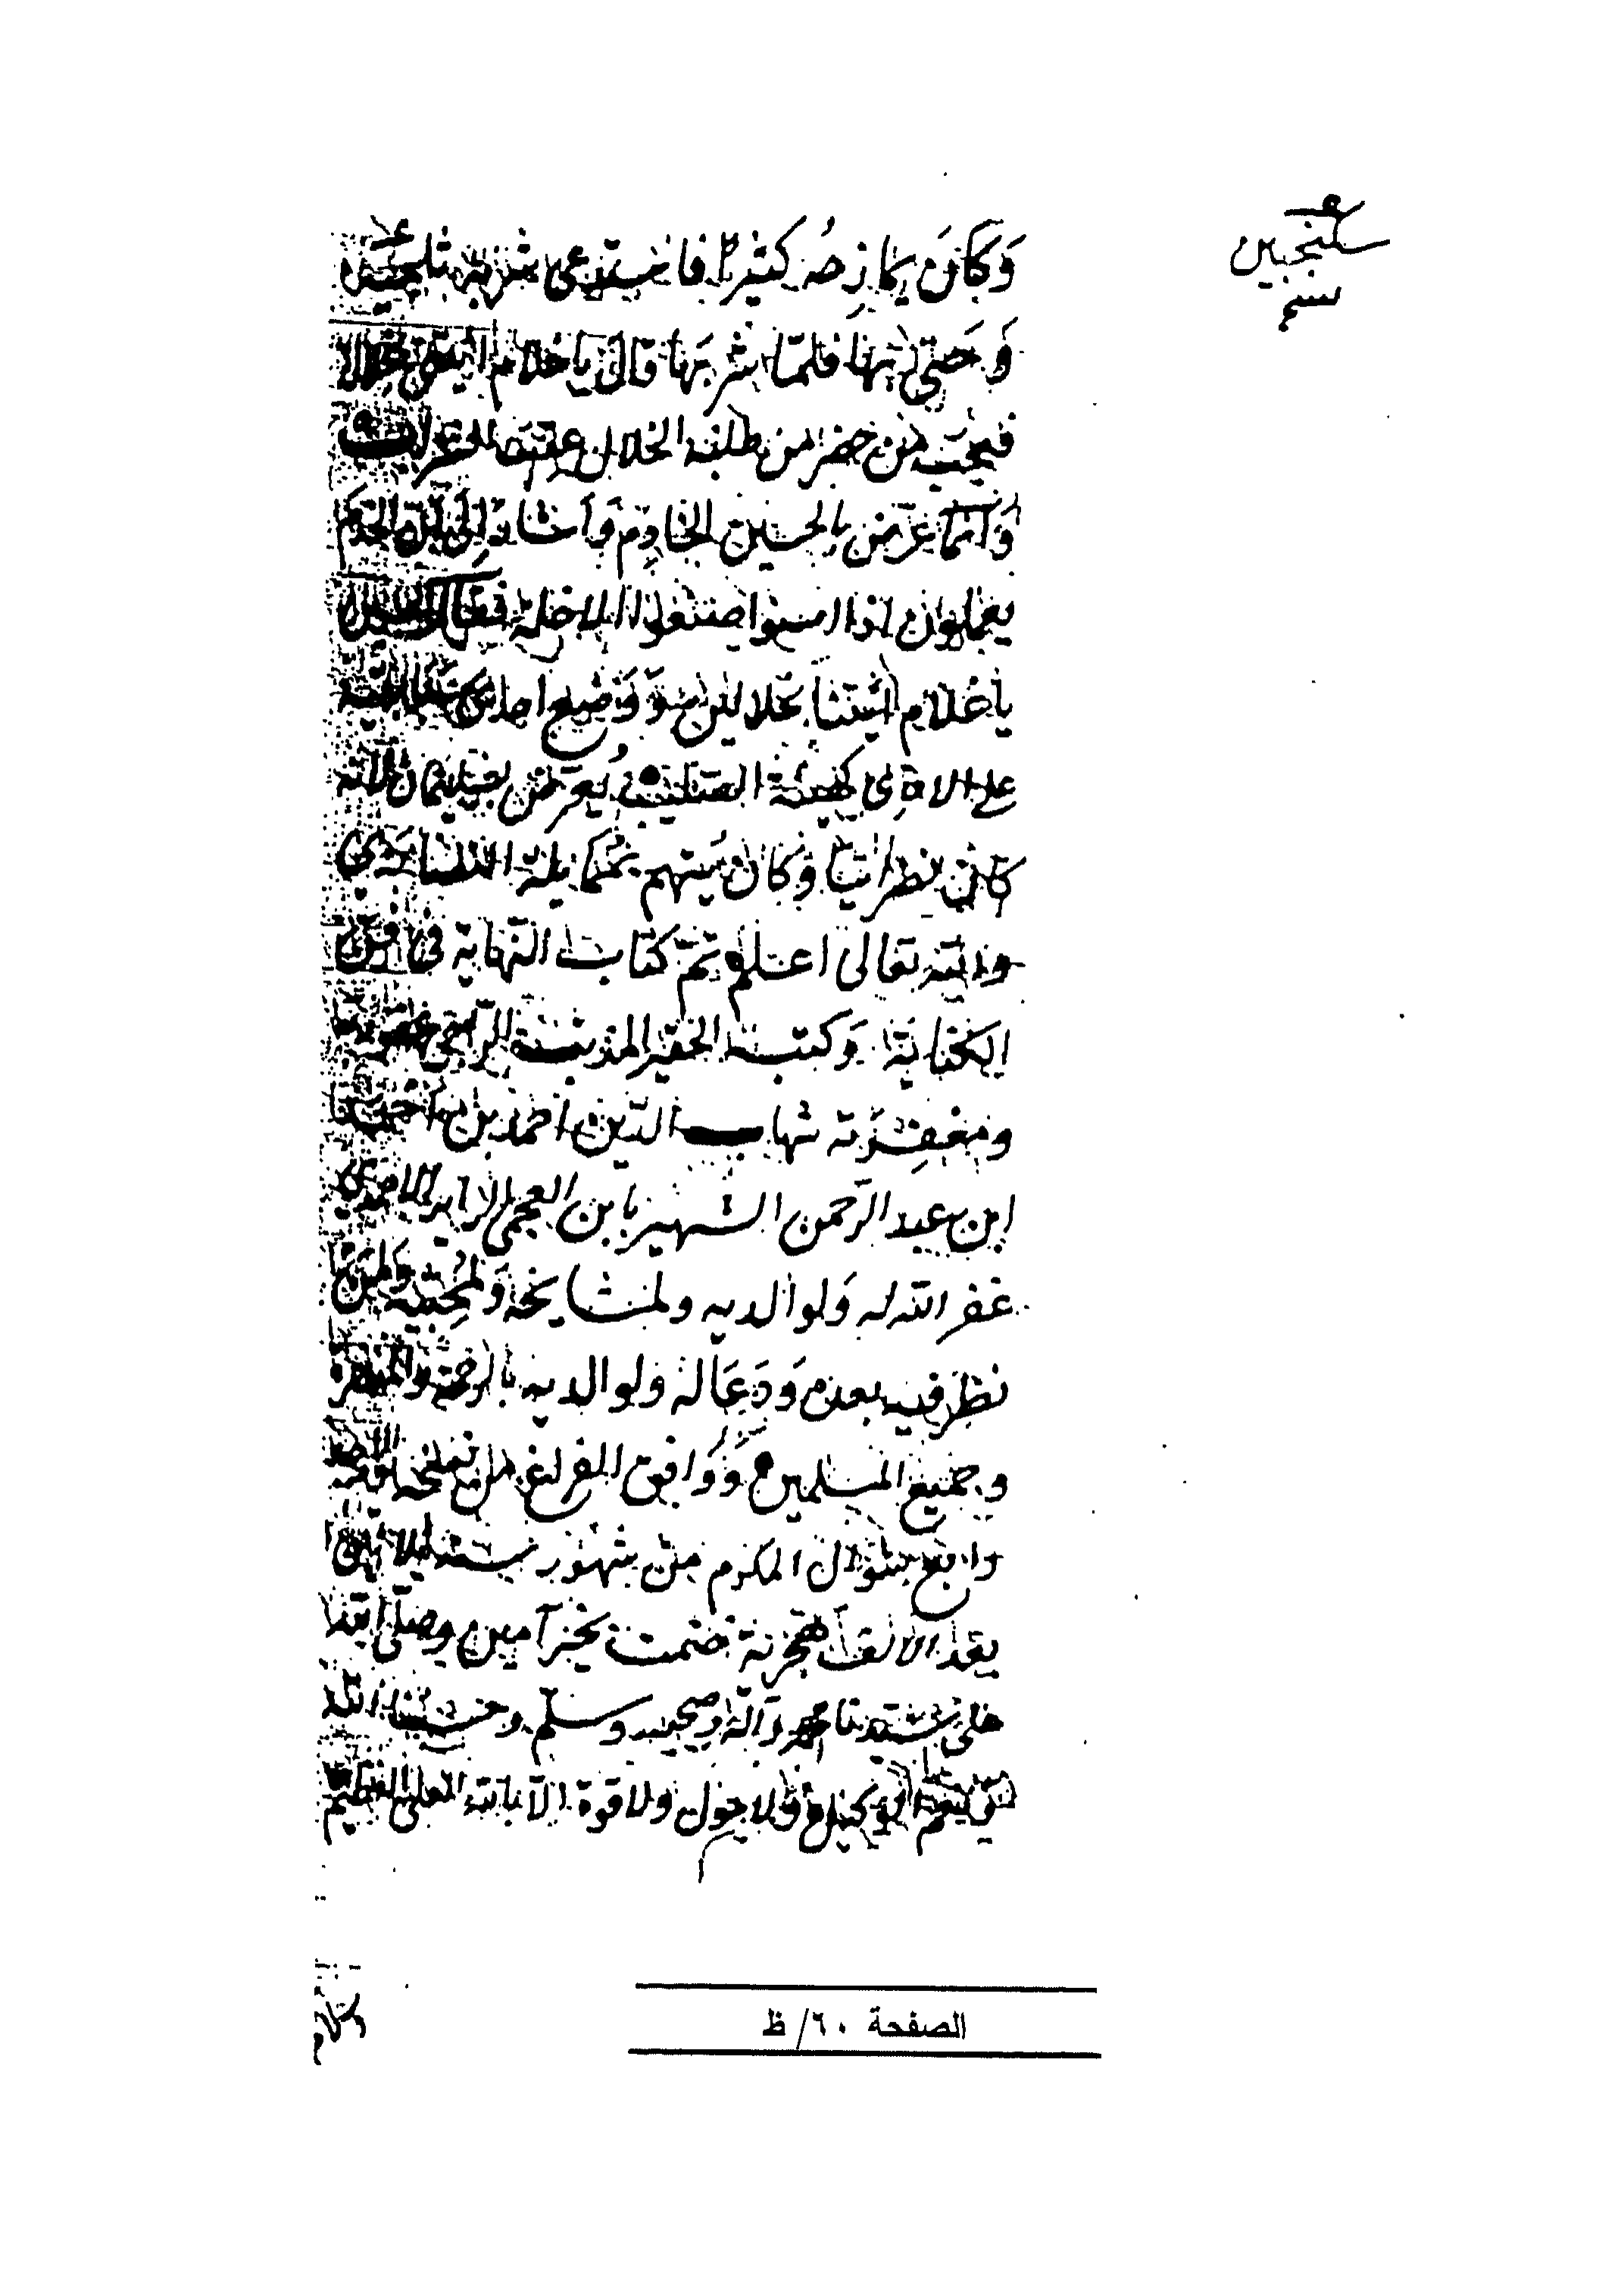 سكنجبين
وَكَانَ يمازِحُه كثيرًا فاستدعى شربة
وَحضى بها فلمّا شربَهَا قال يا غلام
فتعجّب من حضر من طلبه الخلال عقيب
وَانّما عرّض بالحسين الخادِم وَاشار الى انّ الخدم
يعملون اذا امسوا صنعوا الاخلة
يا غلام ائيتنا بخلالين وَوَضع احد
على الاخرى كهيئة الصّليب يُعرّض بسليمان لانّه
كان نصرانيّا وَكان يتّهم
والله تعالى اعلم تمّ كتاب النّهاية في فنّ
الكناية وَكتبه الحقير المذنب الرّاجي
ومغفِرَته شهاب الدّين احمد بن احمد
ابن عبد الرّحمن الشهير بابن العجمي
غفر الله له وَلوالديه ولمشايخه وَلمُحبّيه وَلمن
نظر فيه بعدم وَدَعَا له ولوالديه بالرحمة والمغفرة
وجميع المسلمين وَوَافق الفراغ من نسخه
رابع شوّال المكرّم من شهور سنة
بعد الالف هجرية ختمت بخير آمين وصلّى الله
على سيّدنا محمد وآله وصحبه وسلّم وحسبنا الله
ونعم الوكيل ولا حول ولا قوة الّا بالله العلي العظيم
الصفحة ٦٠/ ظ